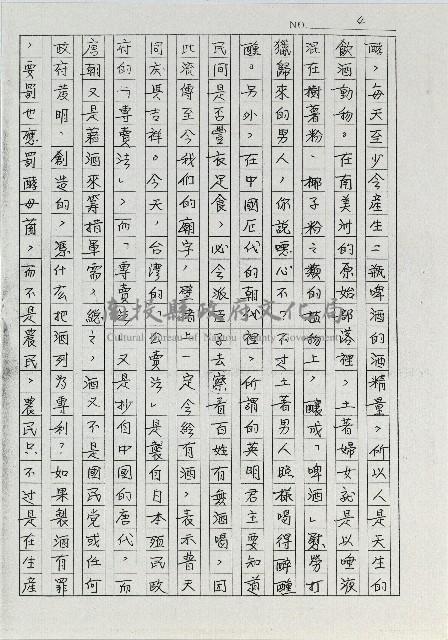 NO. 4
醣，每天至少會產生二瓶啤酒的酒精量，所以人是天生的
飲酒動物。在南美洲的原始部落裡，土著婦女就是以唾液
混在樹薯粉、椰子粉之類的植物上，釀成「啤酒」慰勞打
獵歸來的男人，你說噁心不？不才土著男人照樣喝得醉醺
醺。另外，在中國歷代的朝代裡，所謂的英明君主要知道
民間是否豐衣足食，必會派臣子去察看百姓有無酒喝，因
此流傳至今我們的廟宇，牆上一定會繪有酒，表示普天
同慶與吉祥。今天，台灣的「公賣法」是襲自日本殖民政
府的「專賣法」，而「專賣法」又是抄自中國的唐代，而
唐朝又是藉酒來籌措軍需，總之，酒又不是國民黨或任何
政府發明、創造的，憑什麼把酒列為專利？如果製酒有罪
，要罰也應罰酵母菌，而不是農民，農民只不過是在生產
南投縣政府文化局
Cultural Bureau of Nantou County Government